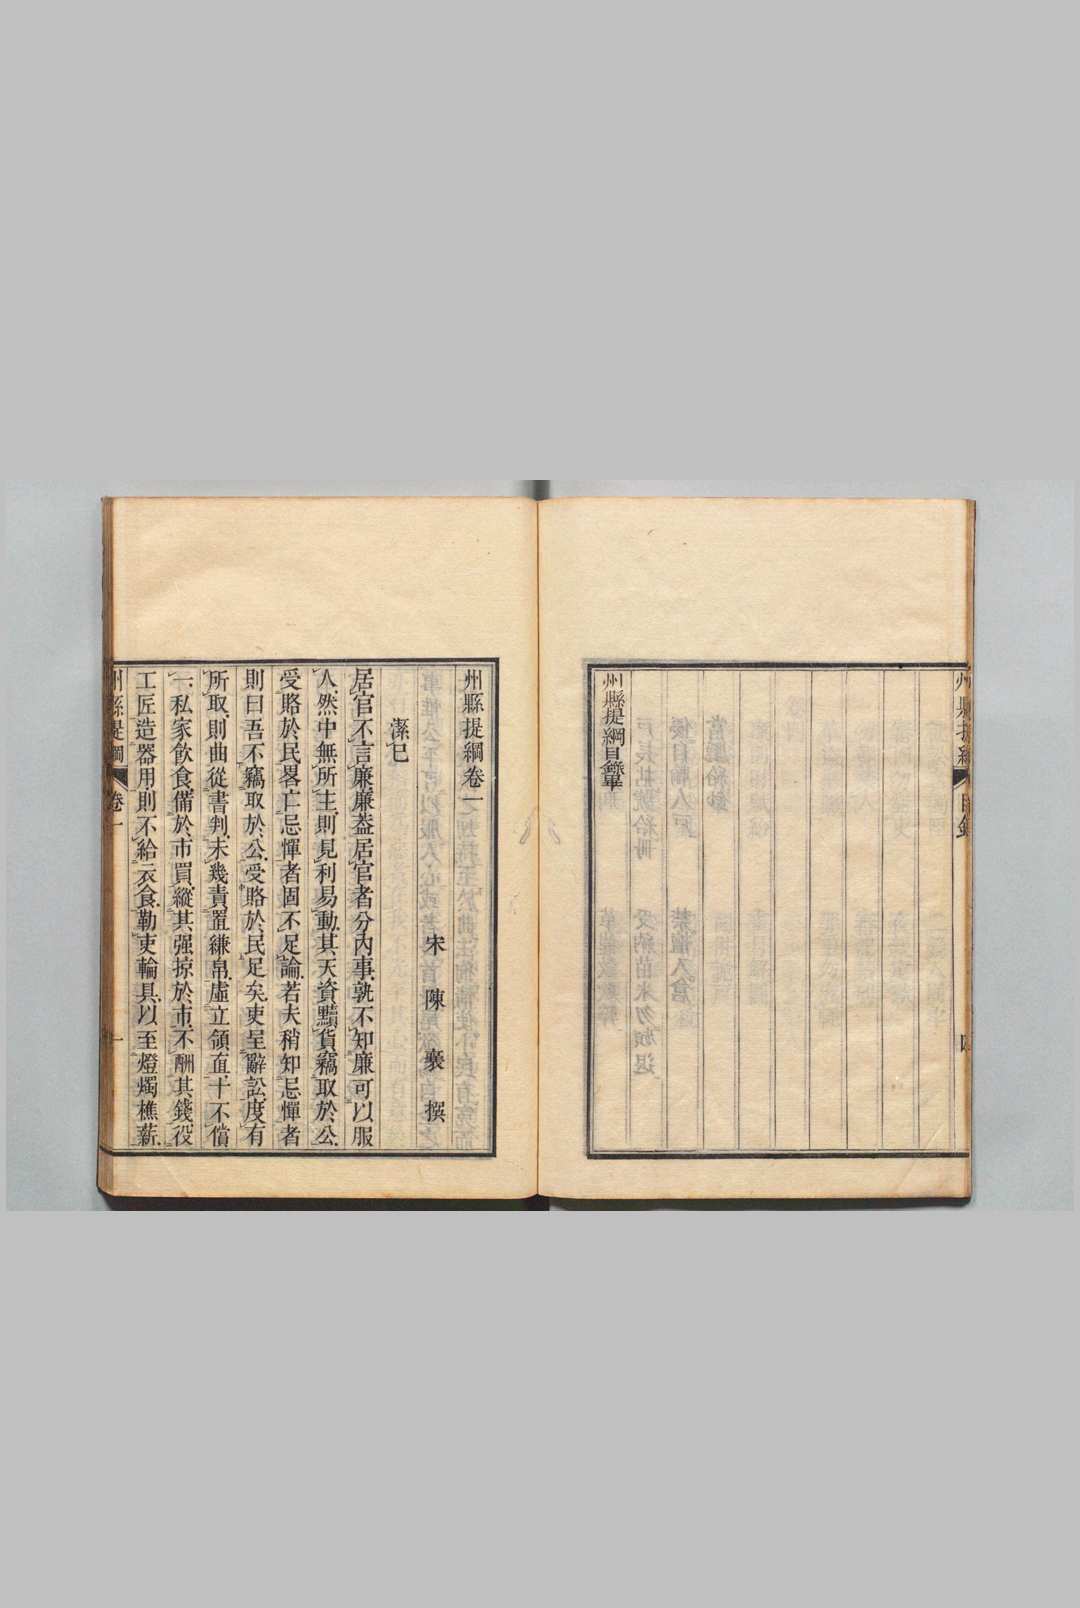 州縣提綱目錄畢
州縣提綱卷一
宋陳襄撰
潔已
居官不言廉廉葢居官者分內事孰不知廉可以服
人然中無所主則見利易動其天資黷貨竊取於公
受賂於民畧亡忌憚者固不足論若夫稍知忌憚者
則曰吾不竊取於公受賂於民足矣吏呈辭訟度有
所取則曲從書判未幾責置縑帛虛立領直十不償
一私家飲食備於市買縱其强掠於市不酬其錢役
工匠造器用則不給衣食勒吏輪具以至燈燭樵薪
州縣提綱 卷一 一